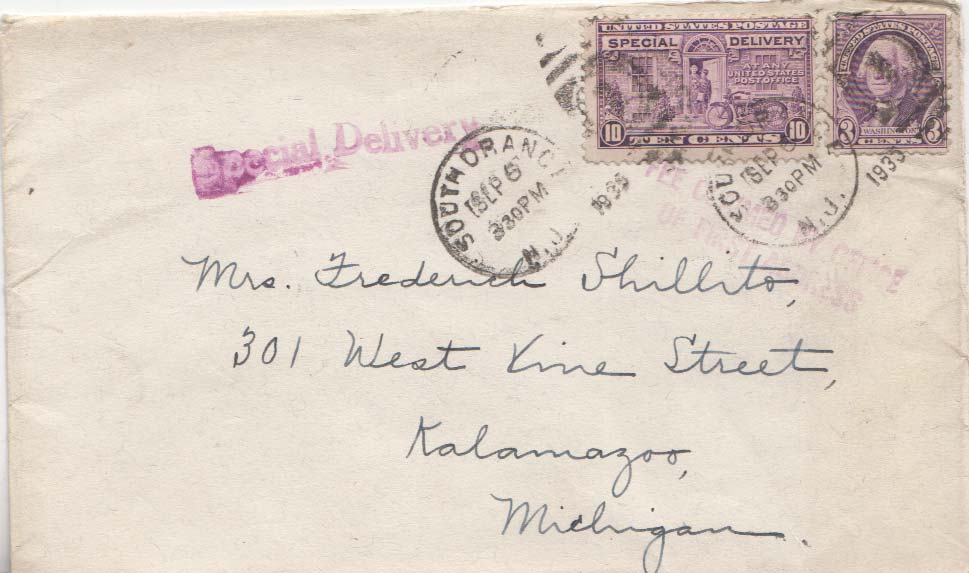 UNITED STATES POSTAGE
SPECIAL DELIVERY
AT ANY
UNITED STATES
POST OFFICE
10 TEN CENTS 10
UNITED STATES POSTAGE
3 WASHINGTON 3
CENTS
Special Delivery
SOUTH ORANGE
SEP 6
330PM
N.J.
1933
SOU
SEP 6
330PM
N.J.
1933
FEE CLAIMED BY OFFICE
OF FIRST ADDRESS
Mrs. Frederick Shillito,
301 West Vine Street,
Kalamazoo,
Michigan.